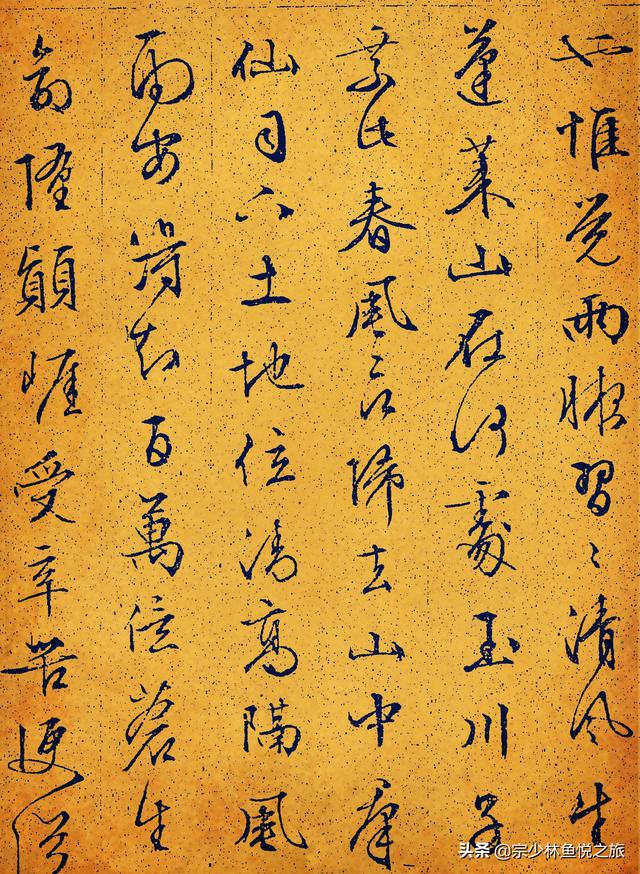 也惟覺兩腋習〻清風生
蓬萊山在何處玉川子
乘此春風欲歸去山中羣
仙司下土地位清高隔風
雨安得知百萬億蒼生
命墮顛崖受辛苦便從
头条 @宗少林鱼悦之旅